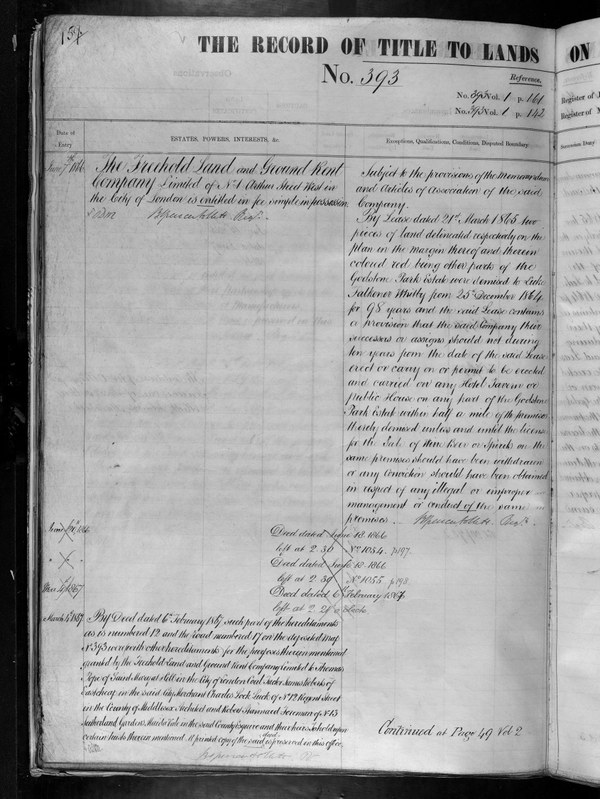 154
THE RECORD OF TITLE TO LANDS
ON
No. 393
Reference.
No. 393 Vol. 1 p. 161
No. 393 Vol. 1 p. 142
Register of
Register of
Date of
Entry
ESTATES, POWERS, INTERESTS, &c.
Exceptions, Qualifications, Conditions, Disputed Boundary
Succession Duty
The Freehold Land and Ground Rent
Company Limited of No. 1 Arthur Street West in
the City of London is entitled in fee simple in possession
Subject to the provisions of the Memorandum
and Articles of Association of the said
Company.
By Lease dated 21st March 1865 two
pieces of land delineated respectively on the
plan in the margin thereof and therein
colored red being other parts of the
Godstone Park Estate were demised to Luke
Falkener Whitby from 25th December 1864
for 98 years and the said Lease contains
a provision that the said Company their
successors or assigns should not during
ten years from the date of the said Lease
erect or carry on or permit to be erected
and carried on any Hotel Tavern or
public House on any part of the Godstone
Park Estate within half a mile of the premises
thereby demised unless and until the license
for the Sale of Wine Beer or Spirits on the
same premises should have been withdrawn
or any Conviction should have been obtained
in respect of any illegal or improper
management or conduct of the same
premises.
Deed dated June 18 1866
left at 2.30 No. 1054. p197.
Deed dated 18 1866
left at 2.30 No. 1055 p198
Deed dated 6th February 1867
left at 2.
March 1867
By Deed dated 6th February 1867 such part of the hereditaments
as is numbered 12 and the road numbered 17 on the deposited Map
No. 393 were with other hereditaments for the purposes therein mentioned
granted by the Freehold Land and Ground Rent Company Limited to Thomas
Pope of Saint Mary at Hill in the City of London Coal Factor James Roberts of
Eastcheap in the said City Merchant Charles Fock Luck of No. 72 Regent Street
in the County of Middlesex Architect and Robert Stannard Foreman of No. 13
Sutherland Gardens Maida Vale in the said County Esquire and their heirs to hold upon
certain trusts therein mentioned. A printed copy of the said deed is preserved in this Office.
Continued at Page 49 Vol 2